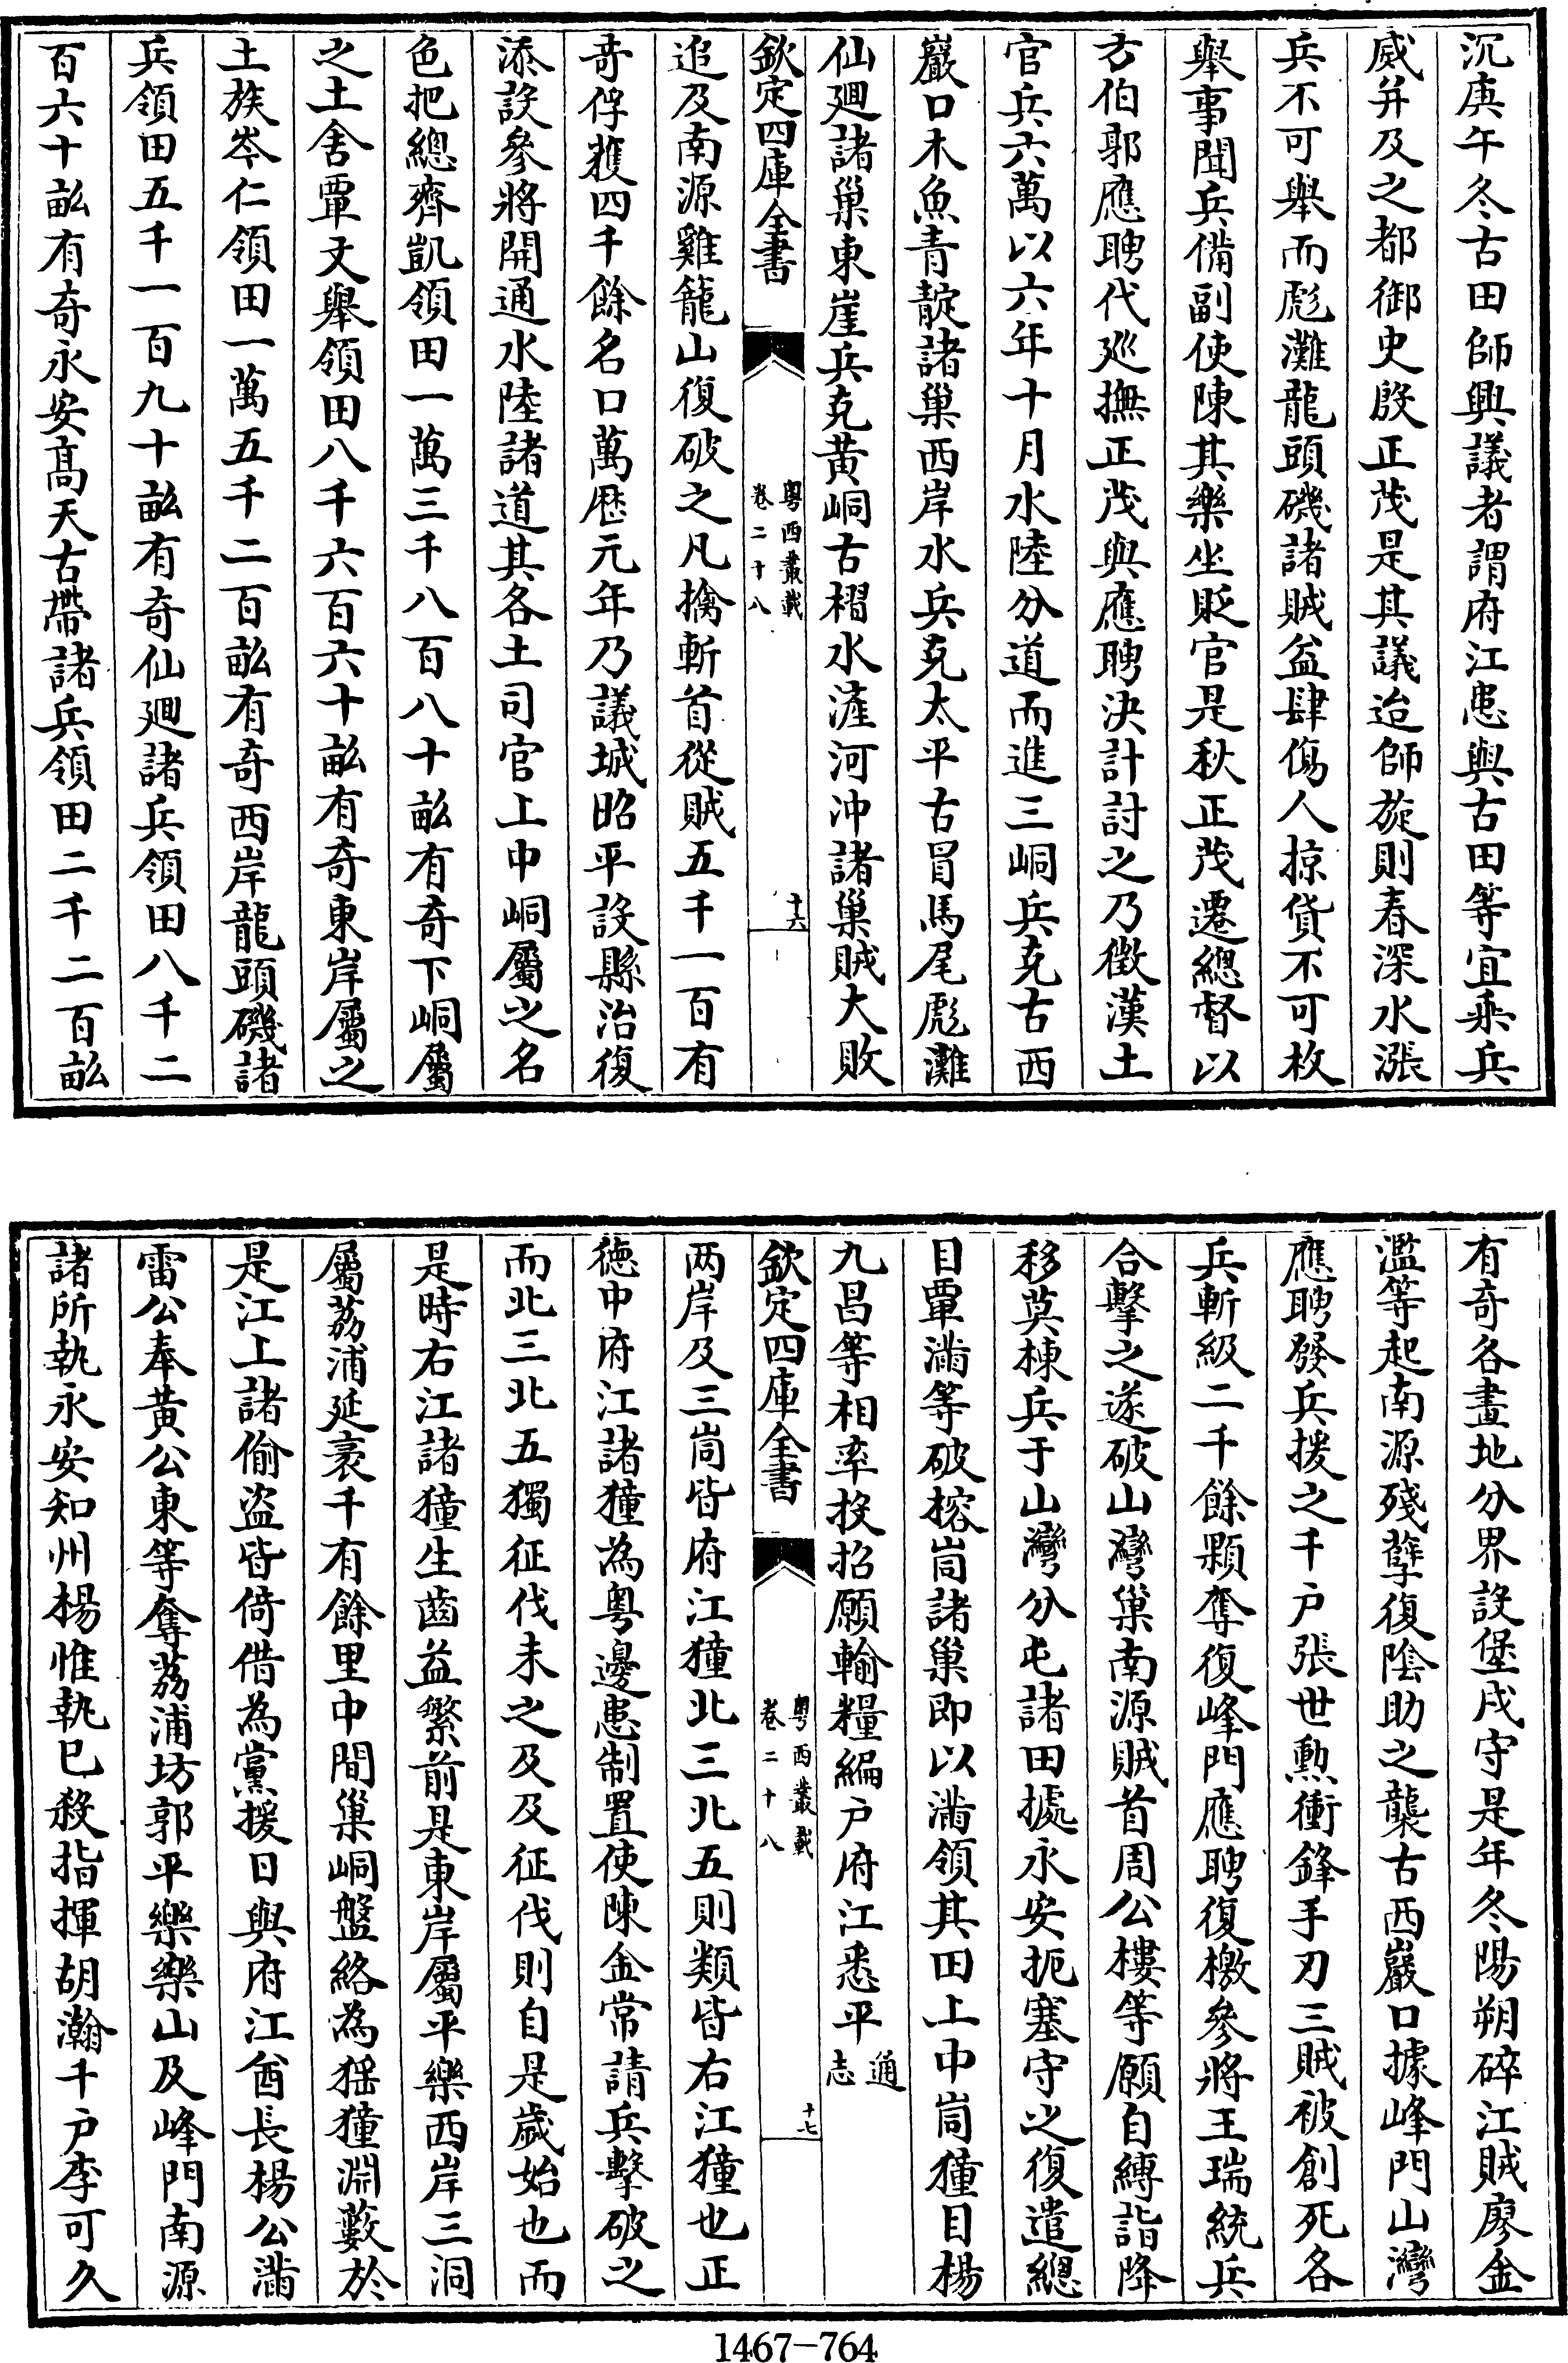 沉庚午冬古田師興議者謂府江患與古田等宜乘兵
威并及之都御史殷正茂是其議迨師旋則春深水漲
兵不可舉而彪灘龍頭磯諸賊益肆傷人掠貨不可枚
舉事聞兵備副使陳其樂坐貶官是秋正茂遷總督以
方伯郭應聘代廵撫正茂與應聘決計討之乃徵漢土
官兵六萬以六年十月水陸分道而進三峒兵克古西
巖口木魚青靛諸巢西岸水兵克太平古冒馬尾彪灘
仙廻諸巢東崖兵克黄峒古槢水滻河冲諸巢賊大敗
欽定四庫全書
粤西叢載
卷二十八
十六
追及南源雞籠山復破之凡擒斬首從賊五千一百有
竒俘獲四千餘名口萬厯元年乃議城昭平設縣治復
添設參將開通水陸諸道其各土司官上中峒屬之名
色把總齊凱領田一萬三千八百八十畝有奇下峒屬
之土舍覃文舉領田八千六百六十畝有奇東岸屬之
土族岑仁領田一萬五千二百畝有奇西岸龍頭磯諸
兵領田五千一百九十畝有奇仙廻諸兵領田八千二
百六十畝有奇永安髙天古帶諸兵領田二千二百畝
有奇各畫地分界設堡戍守是年冬陽朔碎江賊廖金
濫等起南源殘孽復陰助之襲古西巖口據峰門山灣
應聘發兵援之千户張世勲衝鋒手刃三賊被創死各
兵斬級二千餘顆奪復峰門應聘復檄參將王瑞統兵
合擊之遂破山灣巢南源賊首周公樓等願自縛詣降
移莫棟兵于山灣分屯諸田據永安扼塞守之復遣總
目覃滿等破榕峝諸巢即以滿領其田上中峝獞目楊
九昌等相率投招願輸糧編户府江悉平通志
欽定四庫全書
粤西叢載
卷二十八
十七
两岸及三峝皆府江獞北三北五則類皆右江獞也正
徳中府江諸獞為粤邊患制置使陳金常請兵擊破之
而北三北五獨征伐未之及及征伐則自是嵗始也而
是時右江諸獞生齒益繁前是東岸屬平樂西岸三洞
屬荔浦延袤千有餘里中間巢峒盤絡為猺獞淵藪於
是江上諸偷盜皆倚借為黨援日與府江酋長楊公滿
雷公奉黄公東等奪荔浦坊郭平樂樂山及峰門南源
諸所執永安知州楊惟執已殺指揮胡瀚千户李可久
1467-764